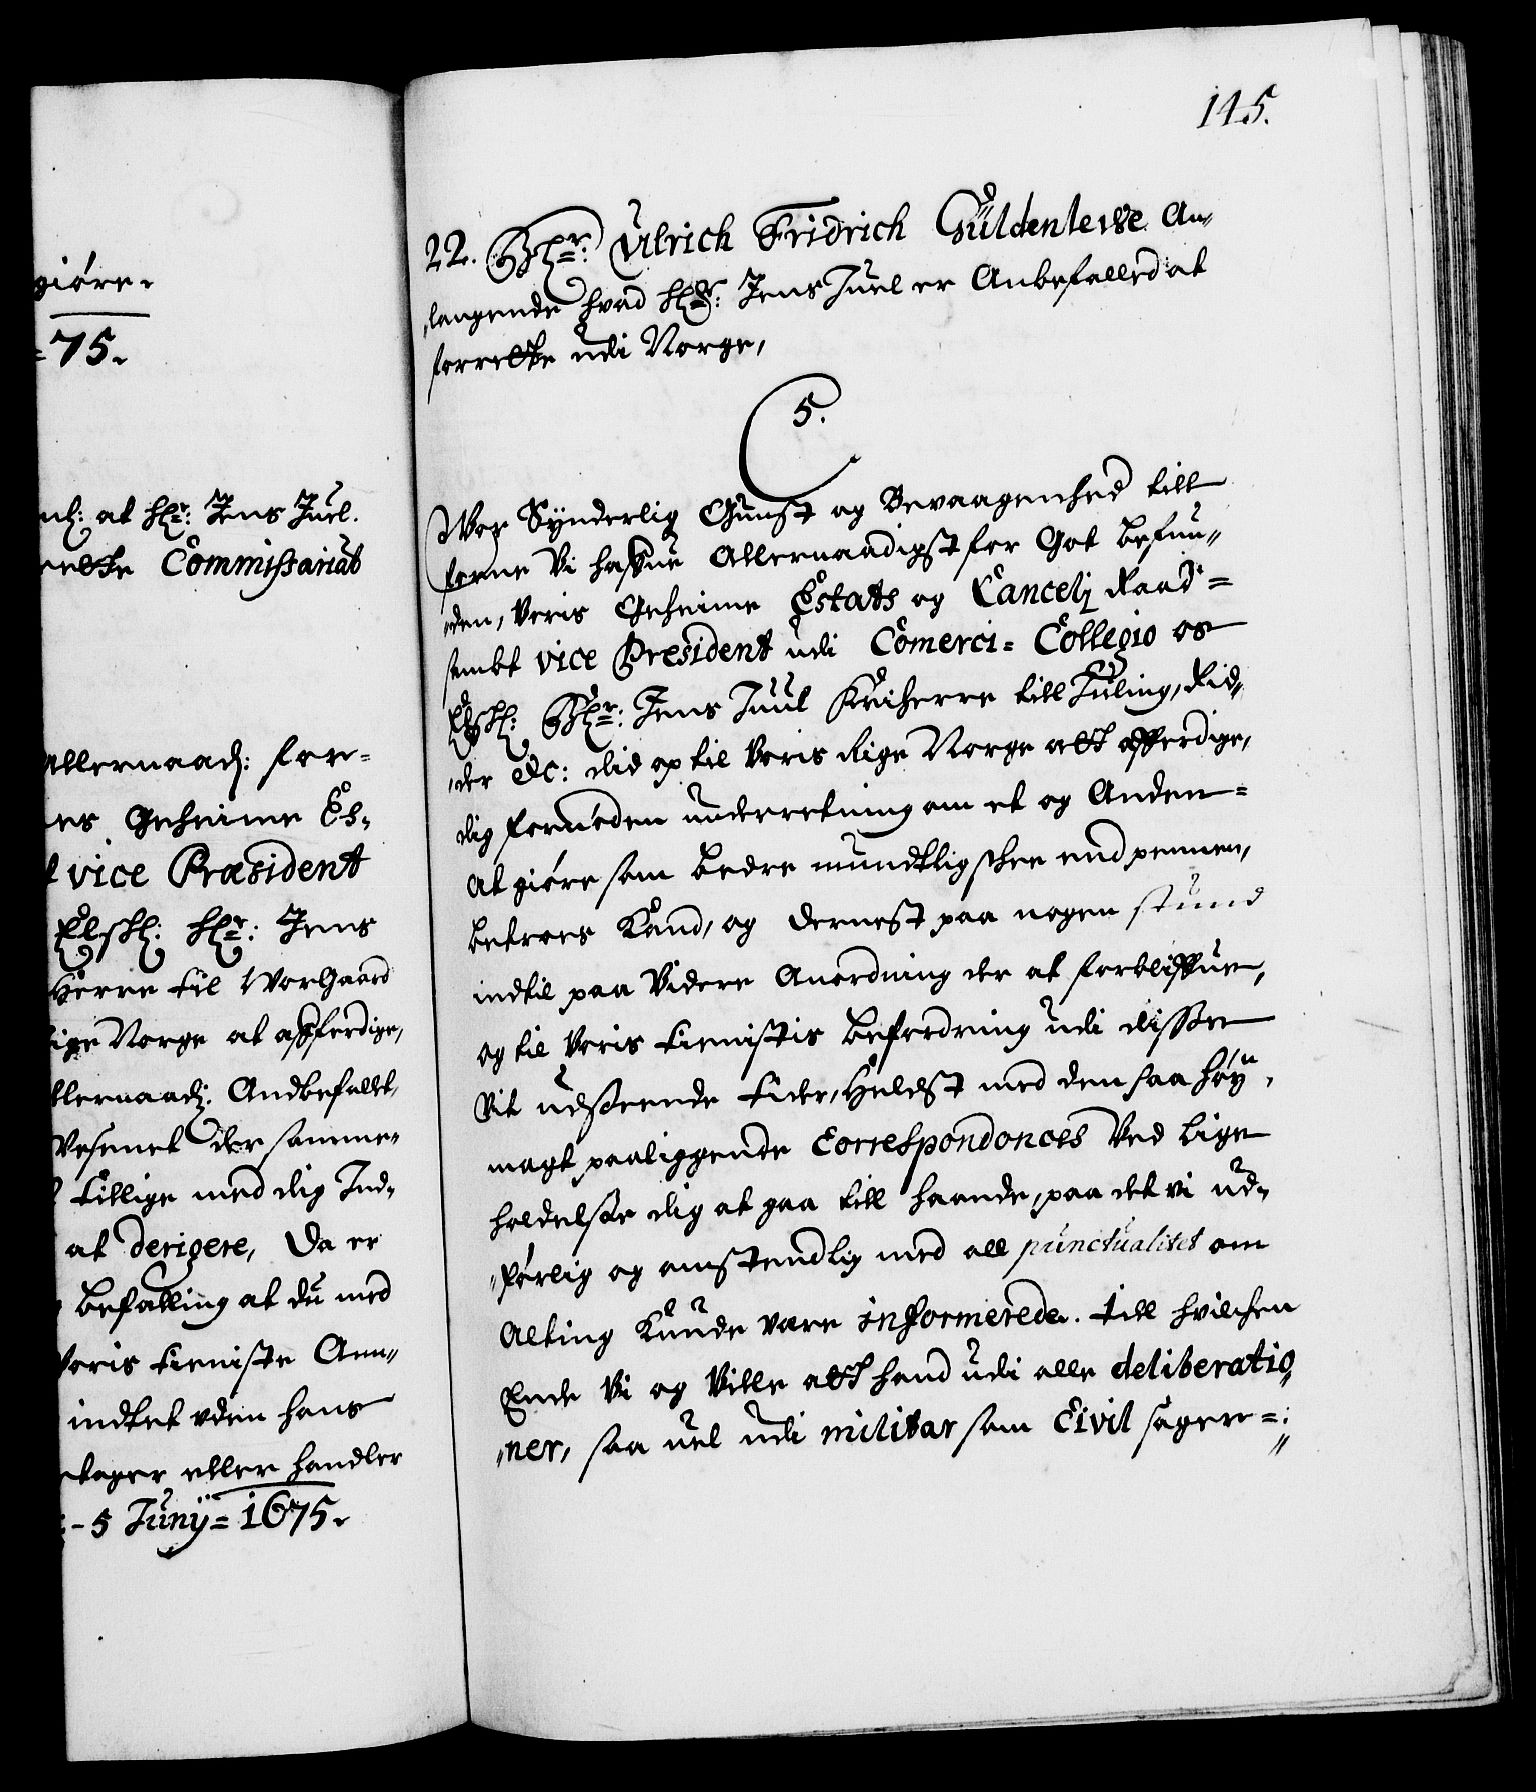 giöre.
=75.
at hr: Jens Juel.
rette Commissariat
allernaad: for=
es Geheime Es,
t vice Præsident
Elskl: hr: Jens
Herre til Worgaard
ige Norge at afferdige,
llernaad: Andbefallet,
Vesenet der samme=
tillige med dig Ind,
at derigere, Da er
befalling at du med
Voris tieniste Ann"
indtet uden hans
etager eller handler
- 5 Junÿ= 1675.
145.
22. Hr: Ulrich Fridrich Güldenlewe An"
"langende hvad Hr: Jens Juel er Anbefalled at
forrette udi Norge,
C 5.
Wor Synderlig Gunst og Bevaagenhed till
forne Vi haffue Allernaadigst for Got befun"
"den, Voris Geheime Estats og Cancelj Raad=
sambt vice President udi Comerci= Collegio os
Elskl: Hr: Jens Juul Friherre till Juling, Rid"
"der &c: did op til Voris Rige Norge att afferdige,
dig fornöden underretning om et og Anden=
at giöre som bedre mundtlig skee end pennen,
betroes Kand, og dernest paa nogen stund
indtil paa Videre Anordning der at forbliffue,
og til Voris tienistis befordring udi disse
vit udseende tider, Heldst med den saa höy"
magt paaliggende Correspondonces Ved lige
holdelsse dig at gaa till haande, paa det vi ud"
"förlig og omstendlig med all punctualitet om
Alting Kunde være informerede. till hvilchen
Ende Vi og Ville att hand udi alle deliberatio"
"ner, saa vel udi militar som Civil sager=: